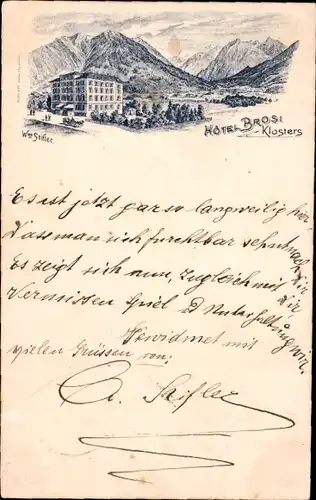 HÔTEL BROSI
Klosters
Wve Stifler
Es ist jetzt gar so langweilig hier
Dass man sich furchtbar sehnt nach Dir
Es zeigt sich nun, zugleich mit Dir
Vermissen viel D Unterhaltung wir.
Gewidmet mit
vielen Grüssen von:
A. Stifler